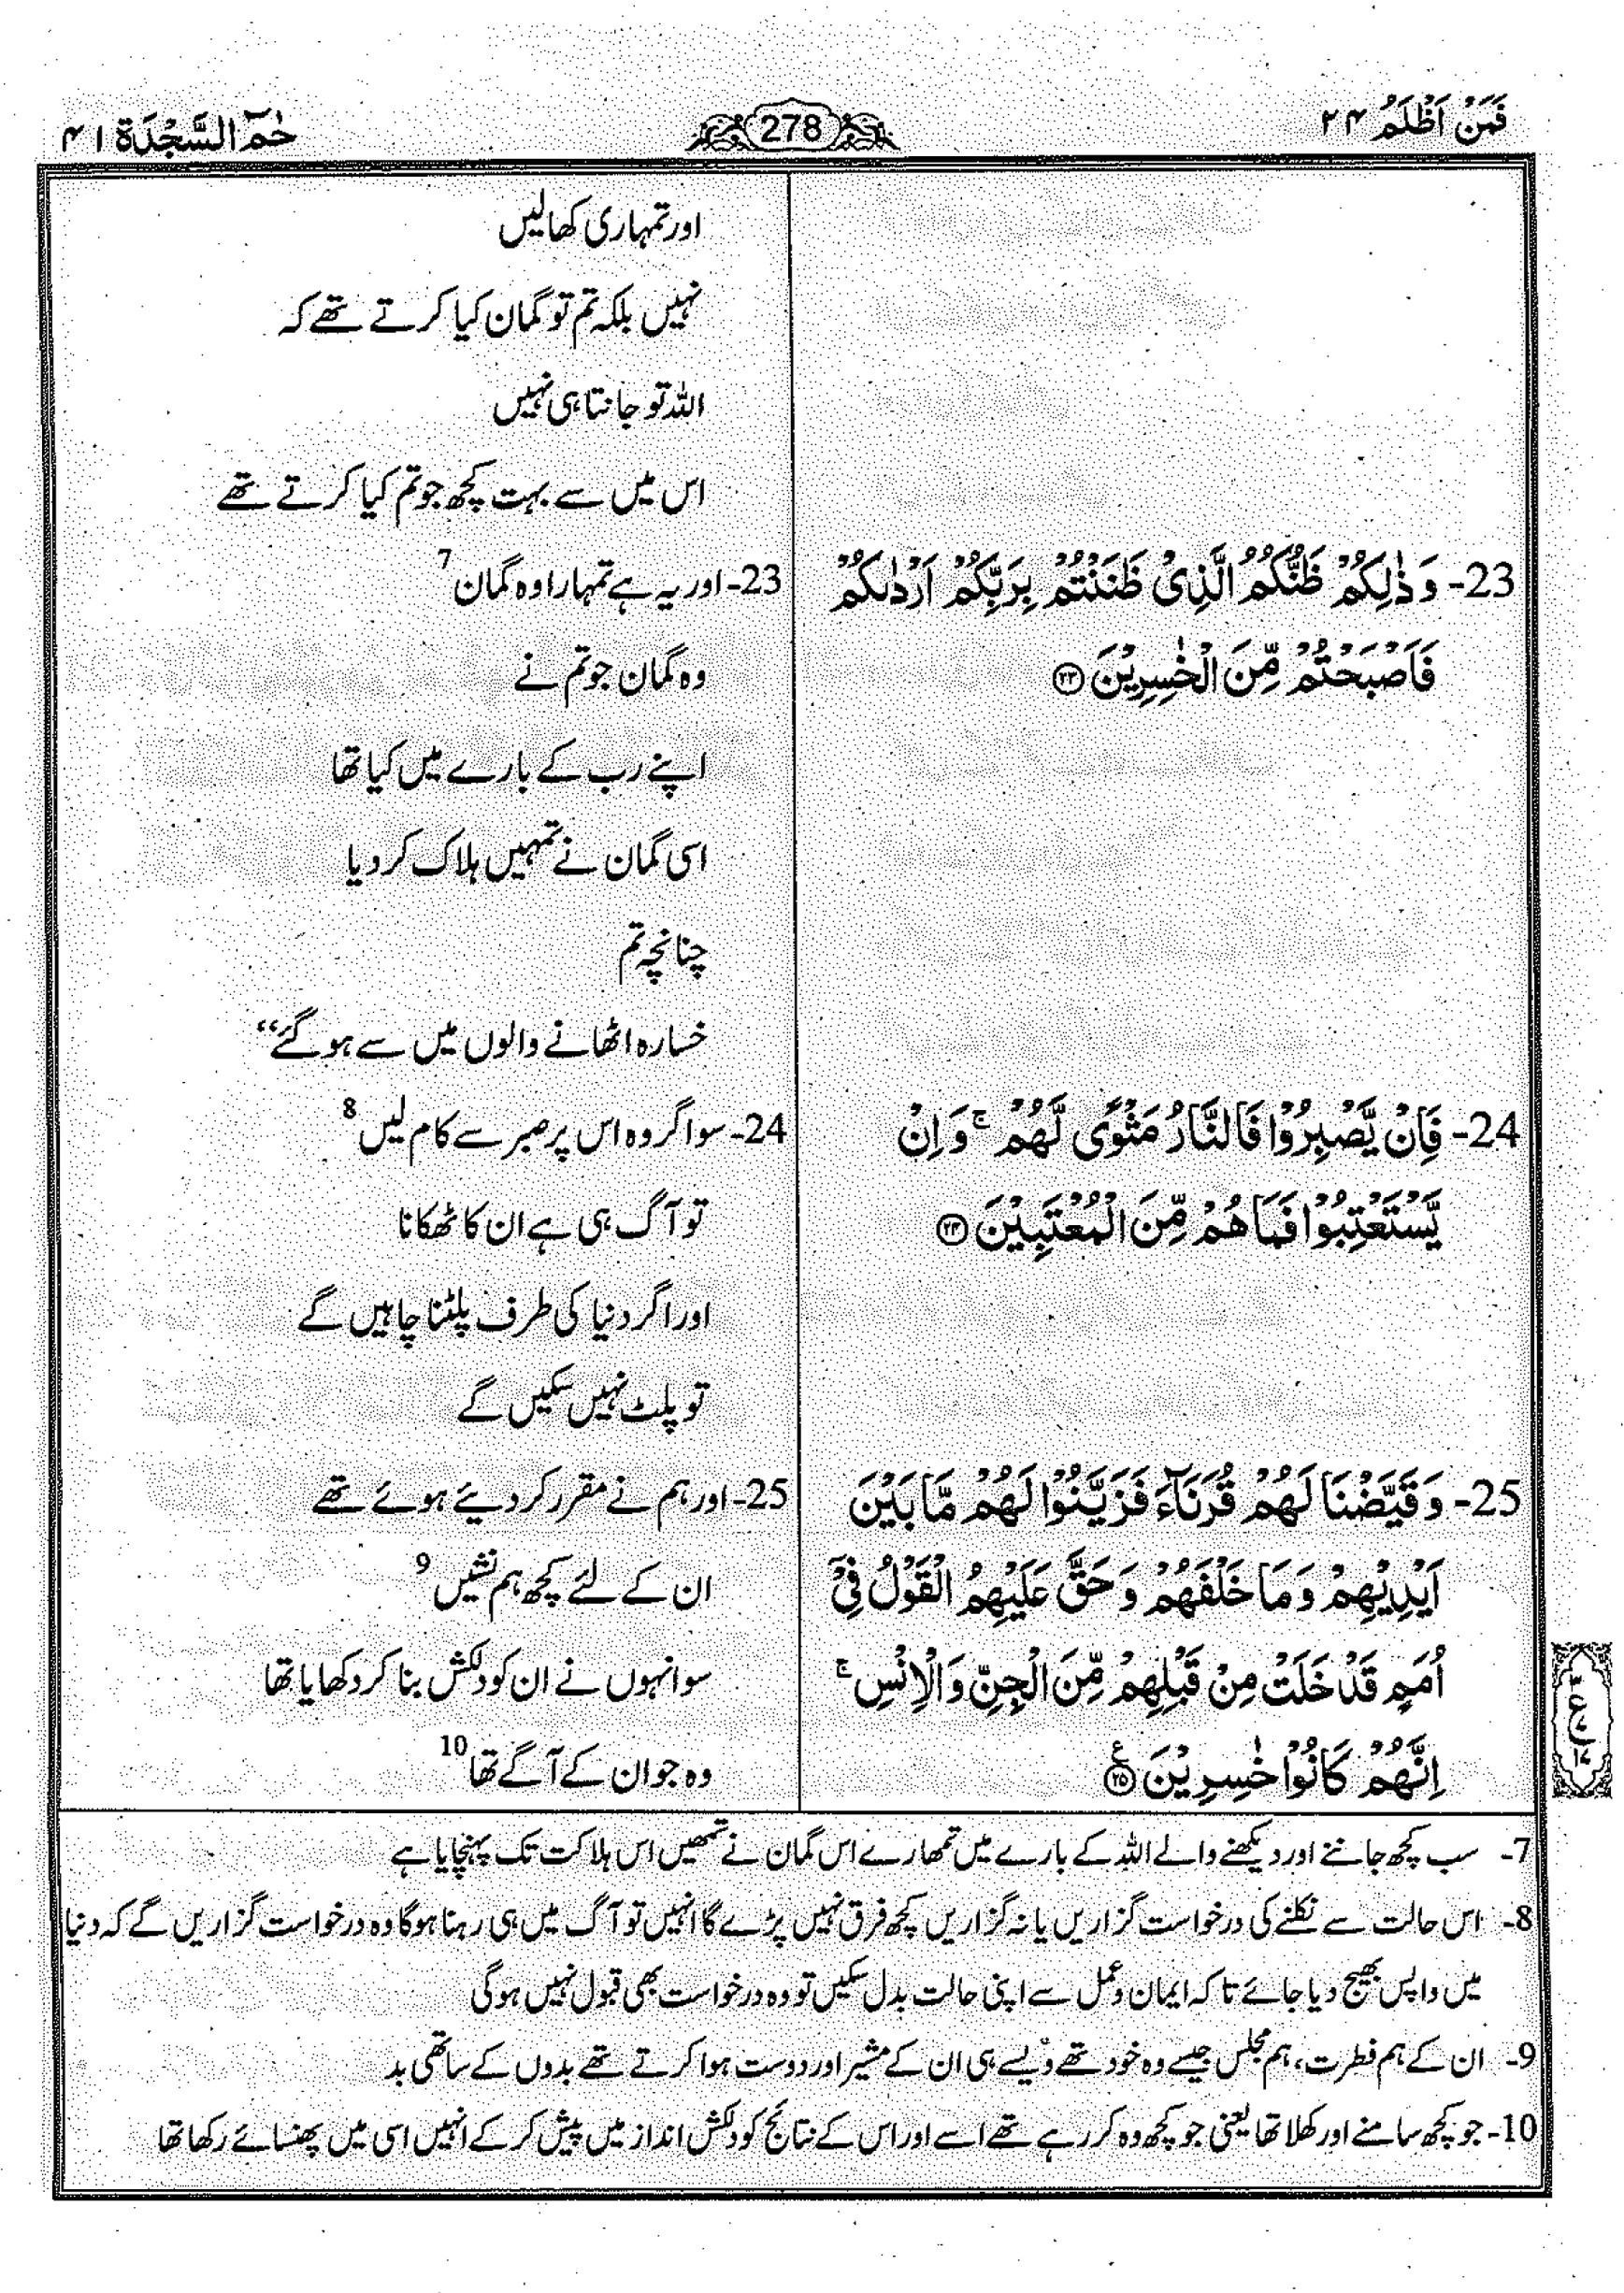 فَمَنْ اَظْلَمُ ۲۴
278
حٰمٓ السَّجْدَة ۴۱
اور تمہاری کھالیں
نہیں بلکہ تم تو گمان کیا کرتے تھے کہ
اللہ تو جانتا ہی نہیں
اس میں سے بہت کچھ جو تم کیا کرتے تھے
23- وَ ذٰلِكُمْ ظَنُّكُمُ الَّذِیْ ظَنَنْتُمْ بِرَبِّكُمْ اَرْدٰىكُمْ
فَاَصْبَحْتُمْ مِّنَ الْخٰسِرِیْنَ ۲۳
23- اور یہ ہے تمہارا وہ گمان 7
وہ گمان جو تم نے
اپنے رب کے بارے میں کیا تھا
اسی گمان نے تمہیں ہلاک کر دیا
چنانچہ تم
خسارہ اٹھانے والوں میں سے ہو گئے“
24- فَاِنْ یَّصْبِرُوْا فَالنَّارُ مَثْوًى لَّهُمْ ۚ وَ اِنْ
یَّسْتَعْتِبُوْا فَمَا هُمْ مِّنَ الْمُعْتَبِیْنَ ۲۴
24- سو اگر وہ اس پر صبر سے کام لیں 8
تو آگ ہی ہے ان کا ٹھکانا
اور اگر دنیا کی طرف پلٹنا چاہیں گے
تو پلٹ نہیں سکیں گے
25- وَ قَیَّضْنَا لَهُمْ قُرَنَآءَ فَزَیَّنُوْا لَهُمْ مَّا بَیْنَ
اَیْدِیْهِمْ وَ مَا خَلْفَهُمْ وَ حَقَّ عَلَیْهِمُ الْقَوْلُ فِیْۤ
اُمَمٍ قَدْ خَلَتْ مِنْ قَبْلِهِمْ مِّنَ الْجِنِّ وَ الْاِنْسِ ۚ
اِنَّهُمْ كَانُوْا خٰسِرِیْنَ ۲۵ ع
25- اور ہم نے مقرر کر دیئے ہوئے تھے
ان کے لئے کچھ ہم نشیں 9
سو انہوں نے ان کو دلکش بنا کر دکھایا تھا
وہ جو ان کے آگے تھا 10
7- سب کچھ جاننے اور دیکھنے والے اللہ کے بارے میں تمھارے اس گمان نے تمھیں اس ہلاکت تک پہنچایا ہے
8- اس حالت سے نکلنے کی درخواست گزاریں یا نہ گزاریں کچھ فرق نہیں پڑے گا انہیں تو آگ میں ہی رہنا ہوگا وہ درخواست گزاریں گے کہ دنیا
میں واپس بھیج دیا جائے تا کہ ایمان و عمل سے اپنی حالت بدل سکیں تو وہ درخواست بھی قبول نہیں ہوگی
9- ان کے ہم فطرت، ہم مجلس جیسے وہ خود تھے ویسے ہی ان کے مشیر اور دوست ہوا کرتے تھے بدوں کے ساتھی بد
10- جو کچھ سامنے اور کھلا تھا یعنی جو کچھ وہ کر رہے تھے اسے اور اس کے نتائج کو دلکش انداز میں پیش کر کے انہیں اسی میں پھنسائے رکھا تھا